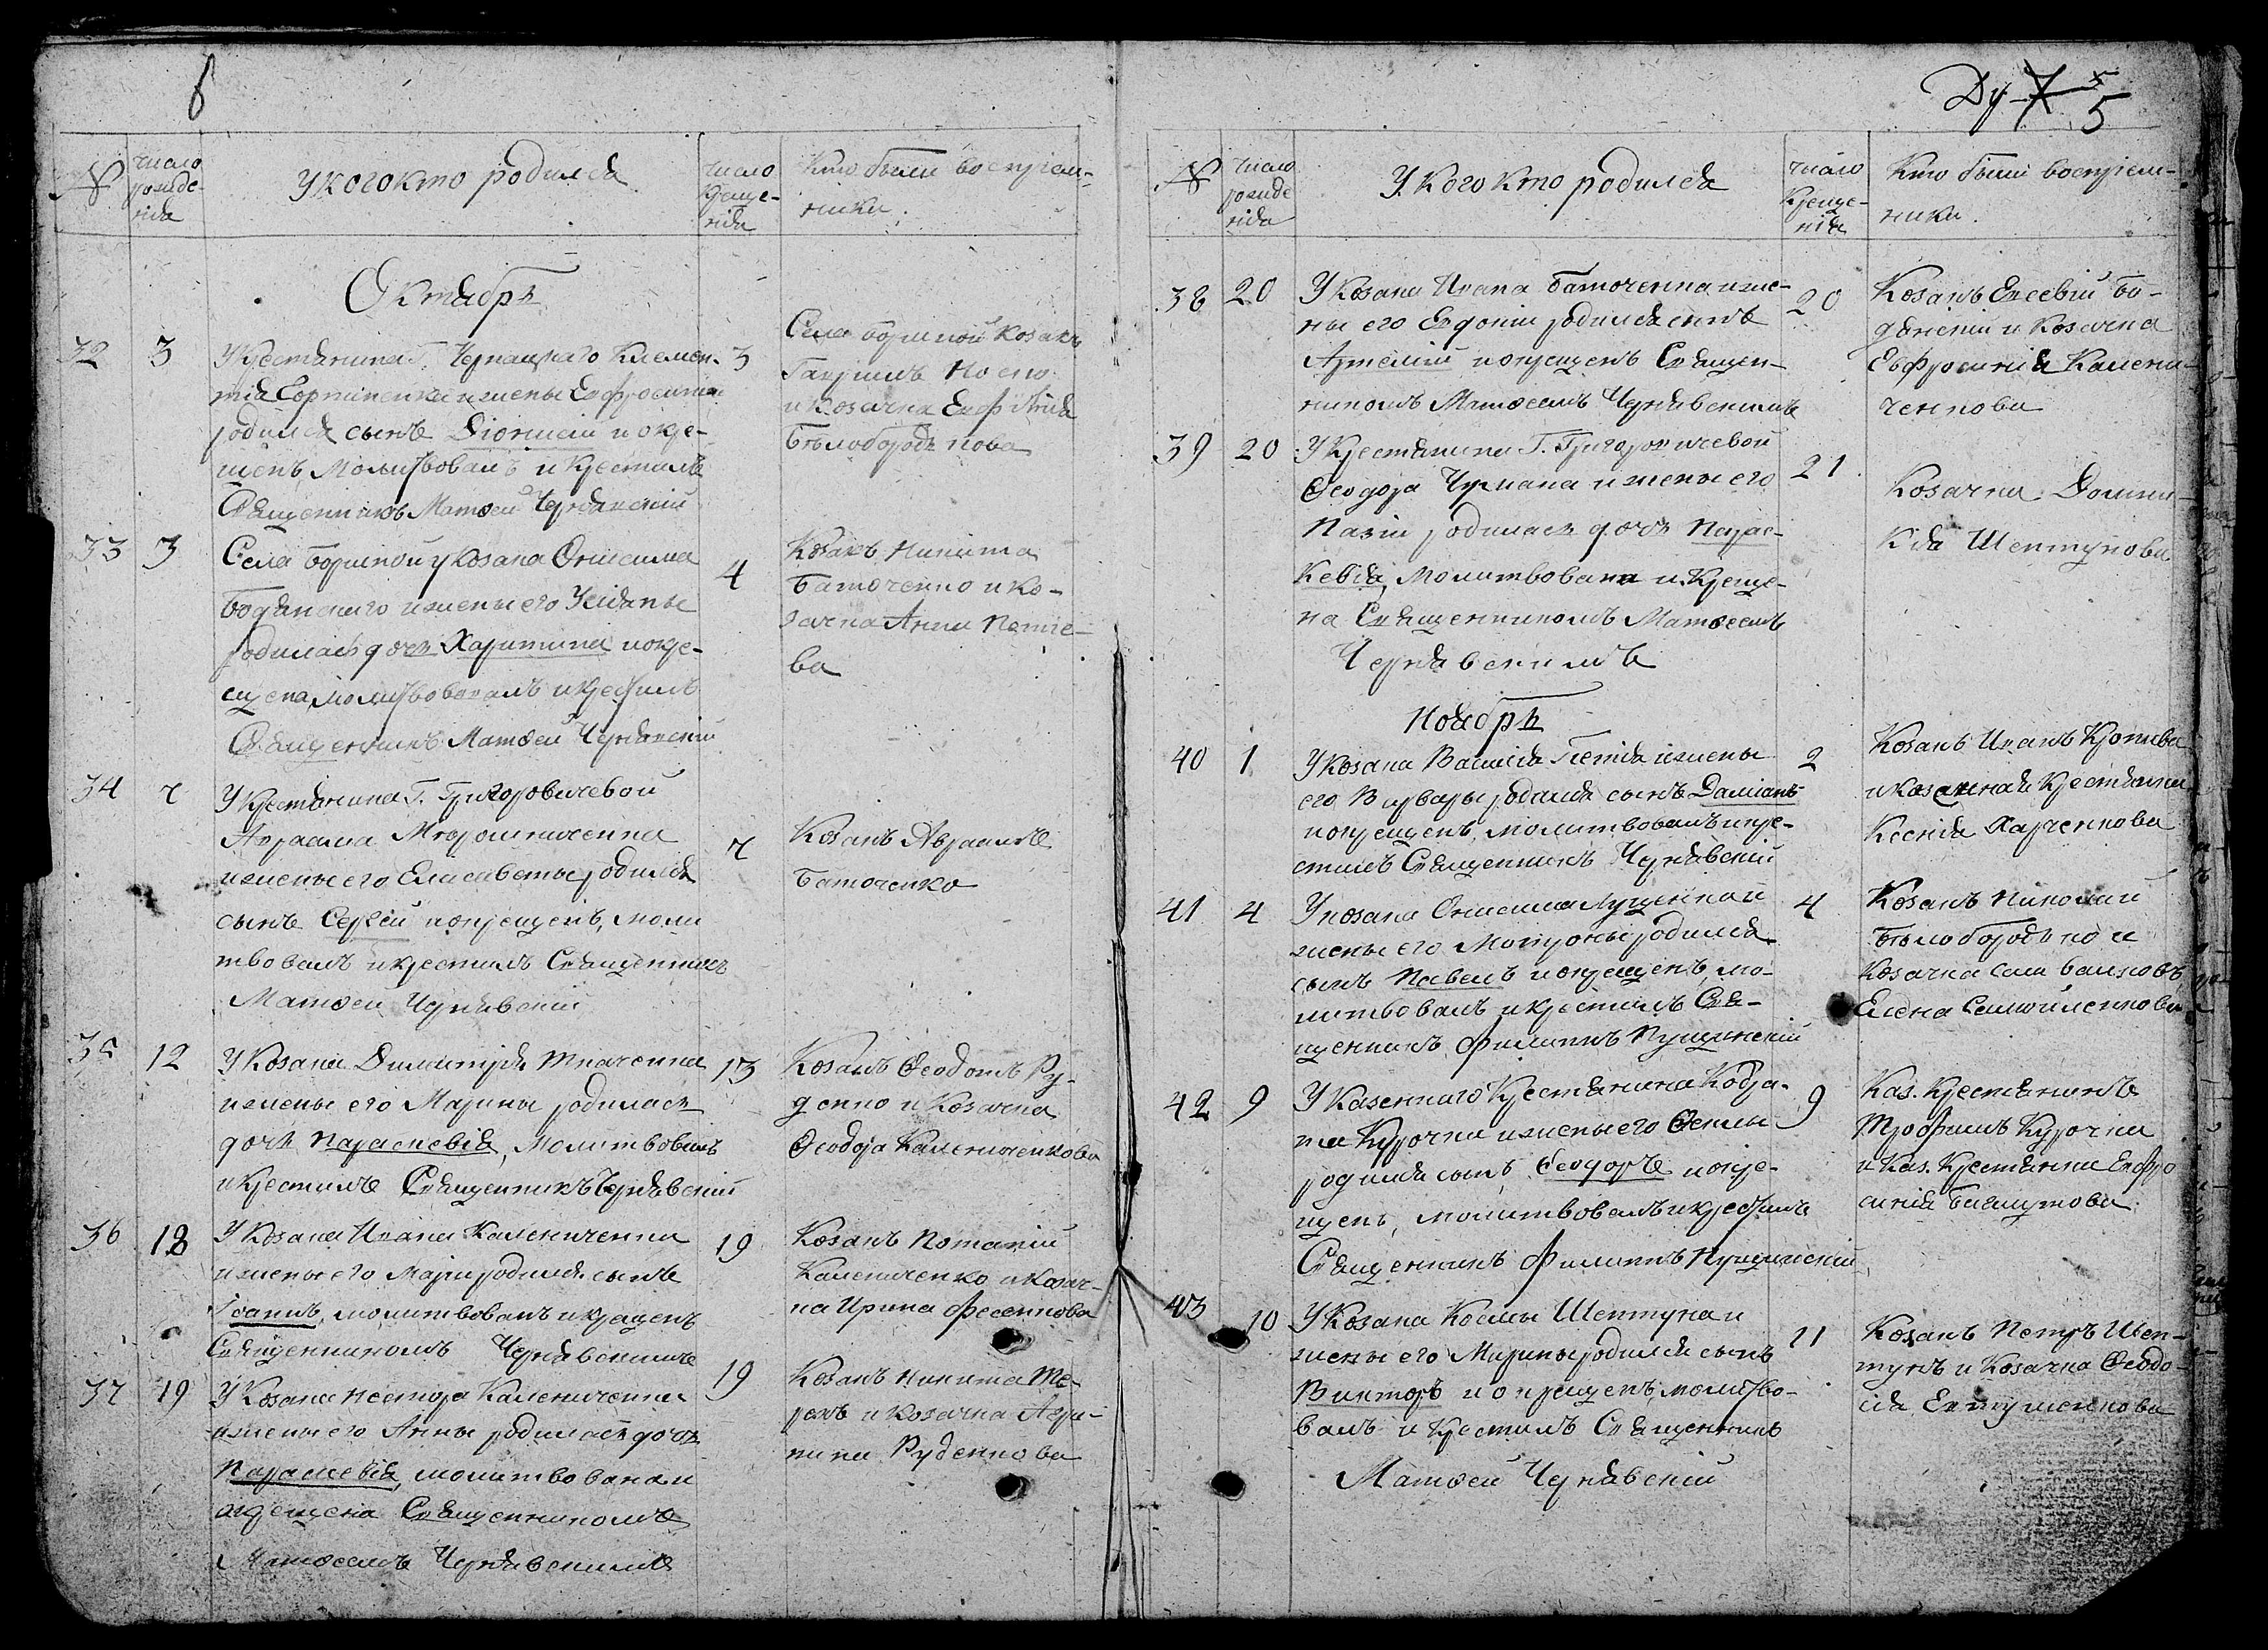 №
число рожде-нія
У кого кто родился
число креще-нія
Кто были воспріем-
ники.
Октябрь
32
3
У Крестьянина Г. Чернацкаго Климен-
тія и жены Евфросиніи
родился сынъ Діонисій и окре-
щенъ, Молитвовалъ и крестилъ
Священникъ Матѳей Чернявскій
3
Села козакъ
Гавріилъ Носко
и козачка Евфимія
Бѣлобородькова
33
3
Села у козака Онисима
Бодянскаго и жены его Уліяны
родилась дочь Харитина и окре-
щена, молитвовалъ и крестилъ
Священникъ Матѳей Чернявскій
4
Козакъ Никита
Баточенко и ко-
зачка Анна
ва
34
7
У Крестьянина Г. Григоровичевой
Авраама Мирошниченка
и жены его Елисаветы родился
сынъ Сергій и окрещенъ, моли
твовалъ и крестилъ Священникъ
Матѳей Чернявскій
7
Козакъ Авраамъ
Баточенко
35
12
У Козака Димитрія Ткаченка
и жены его Марины родилась
дочь Параскевія, Молитвовалъ
и крестилъ Священникъ Чернявскій
13
Козакъ Ѳеодотъ Ру-
денко и Козачка
Ѳеодора Калениченкова
36
18
У Козака Ивана Калениченка
и жены его Маріи родился сынъ
Іоаннъ, молитвованъ и крещенъ
Священникомъ Чернявскимъ
19
Козакъ Потапій
Калениченко и Козач-
ка Ирина Фесенкова
37
19
У Козака Нестора Калениченка
и жены его Анны родилась дочь
Параскевія, молитвована и
окрещена Священникомъ
Матѳеемъ Чернявскимъ
19
Козакъ Никита Те-
рехъ и козачка Агри-
пина Руденкова
Ду 7 5
5
№
число рожде нія
У кого кто родился
число Креще-нія
Кто были воспріем-
ники.
38
20
У Козака Ивана Баточенка и же-
ны его Евдокіи родился сынъ
Артемій и окрещенъ Священ-
никомъ Матѳеемъ Чернявскимъ
20
Козакъ Евсевій Бо-
дянскій и Козачка
Евфросинія Калени-
ченкова
39
20
У Крестьянина Г. Григоровичевой
Ѳеодора Чумака и жены его
родилась дочь Парас-
кевія, Молитвована и Креще-
на Священникомъ Матѳеемъ
Чернявскимъ
21
Козачка Домни-
кія Шептунова
Ноябрь
40
1
У Козака Василія и жены
его Варвары родился сынъ Даміанъ
и окрещенъ, молитвовалъ и кре-
стилъ Священникъ Чернявскій
2
Козакъ Иванъ Кропива
и казенная Крестьянка
Ксенія Харченкова
41
4
У козака Онисима Лущенка и
жены его Мотроны родился
сынъ Павелъ и окрещенъ, мо-
литвовалъ и крестилъ Свя-
щенникъ Филиппъ Пущинскій
4
Козакъ Николай
Бѣлобородько и
Козачка села
Елена Самойленкова
42
9
У Казеннаго Крестьянина Кодра-
та Курочки и жены его Ѳеклы
родился сынъ Ѳеодоръ и окре-
щенъ, молитвовалъ и крестилъ
Священникъ Филиппъ Пущинскій
9
Каз. Крестьянинъ
Трофимъ Курочка
и Каз. Крестьянка Евфро
синія
43
10
У Козака Космы Шептуна и
жены его Марины родился сынъ
Викторъ и окрещенъ, молитво-
валъ и крестилъ Священникъ
Матѳей Чернявскій
11
Козакъ Петръ Шеп-
тунъ и Козачка Ѳеодо-
сія Евтушенкова